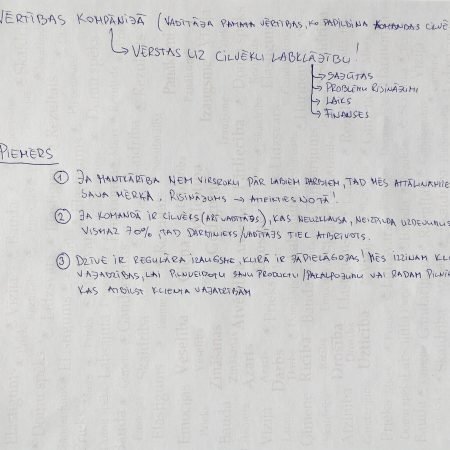 VĒRTĪBAS KOMPĀNIJĀ (VADĪTĀJA PAMATA VĒRTĪBAS, KO PAPILDINA KOMANDAS CILVĒ
VĒRSTAS UZ CILVĒKU LABKLĀJĪBU!
SAJŪTAS
PROBLĒMU RISINĀJUMI
LAIKS
FINANSES
PIEMĒRS
1 JA MANTKĀRĪBA ŅEM VIRSROKU PĀR LABIEM DARBIEM, TAD MĒS ATTĀLINAMIES
SAVA MĒRĶA. RISINĀJUMS → ATTEIKTIES NO TĀ!
2 JA KOMANDĀ IR CILVĒKS (ARĪ VADĪTĀJS), KAS NEUZKLAUSA, NEIZPILDA UZDEVUMUS
VISMAZ 70%, TAD DARBINIEKS/VADĪTĀJS TIEK ATBRĪVOTS.
3 DZĪVE IR REGULĀRA IZAUGSME, KURĀ IR JĀPIELĀGOJAS! MĒS IZZINAM KLI
VAJADZĪBAS, LAI PILNVEIDOTU SAVU PRODUKTU/PAKALPOJUMU VAI RADAM PILNĪ
KAS ATBILST KLIENTA VAJADZĪBĀM